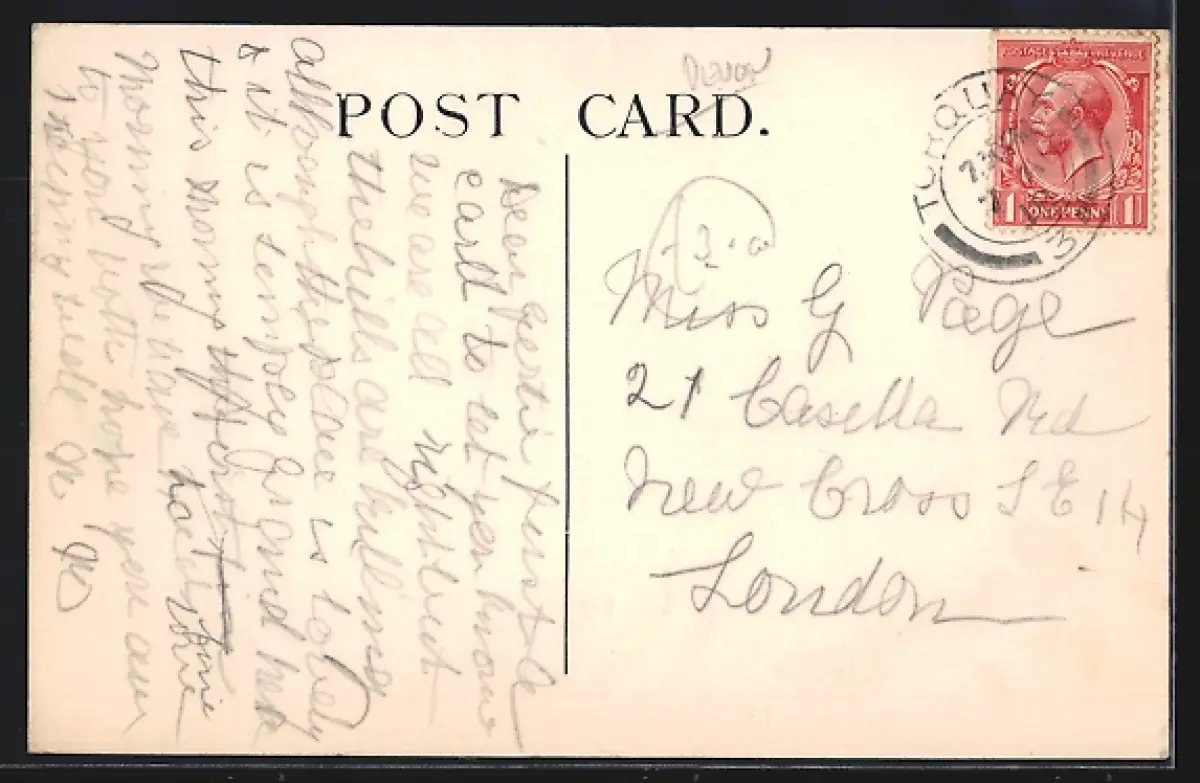 Devon
POST CARD.
POSTAGE REVENUE
1 ONE PENNY 1
TORQUAY
3.0
Miss G Page
21 Casella Rd
New Cross S E 14
London
Dear Gertie just a
card to let you know
we are all right but
the hills are killing
although the place is lovely
& it is simply grand here
this morning
morning
to you both hope you are